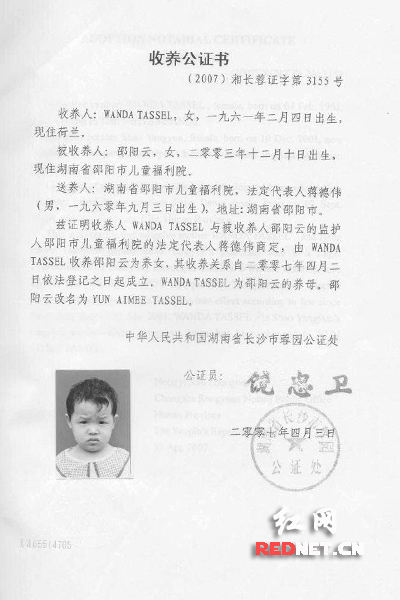 收养公证书
（2007）湘长蓉证字第3155号
收养人：WANDA TASSEL，女，一九六一年二月四日出生，
现住荷兰。
被收养人：邵阳云，女，二零零三年十二月十日出生，
现住湖南省邵阳市儿童福利院。
送养人：湖南省邵阳市儿童福利院，法定代表人蒋德伟
（男，一九六零年九月三日出生），地址：湖南省邵阳市。
兹证明收养人 WANDA TASSEL 与被收养人邵阳云的监护
人邵阳市儿童福利院的法定代表人蒋德伟商定，由 WANDA
TASSEL 收养邵阳云为养女，其收养关系自二零零七年四月二
日依法登记之日起成立，WANDA TASSEL 为邵阳云的养母。邵
阳云改名为 YUN AIMEE TASSEL。
中华人民共和国湖南省长沙市蓉园公证处
公证员：饶忠卫
二零零七年四月三日
公证处
红网
REDNET.CN